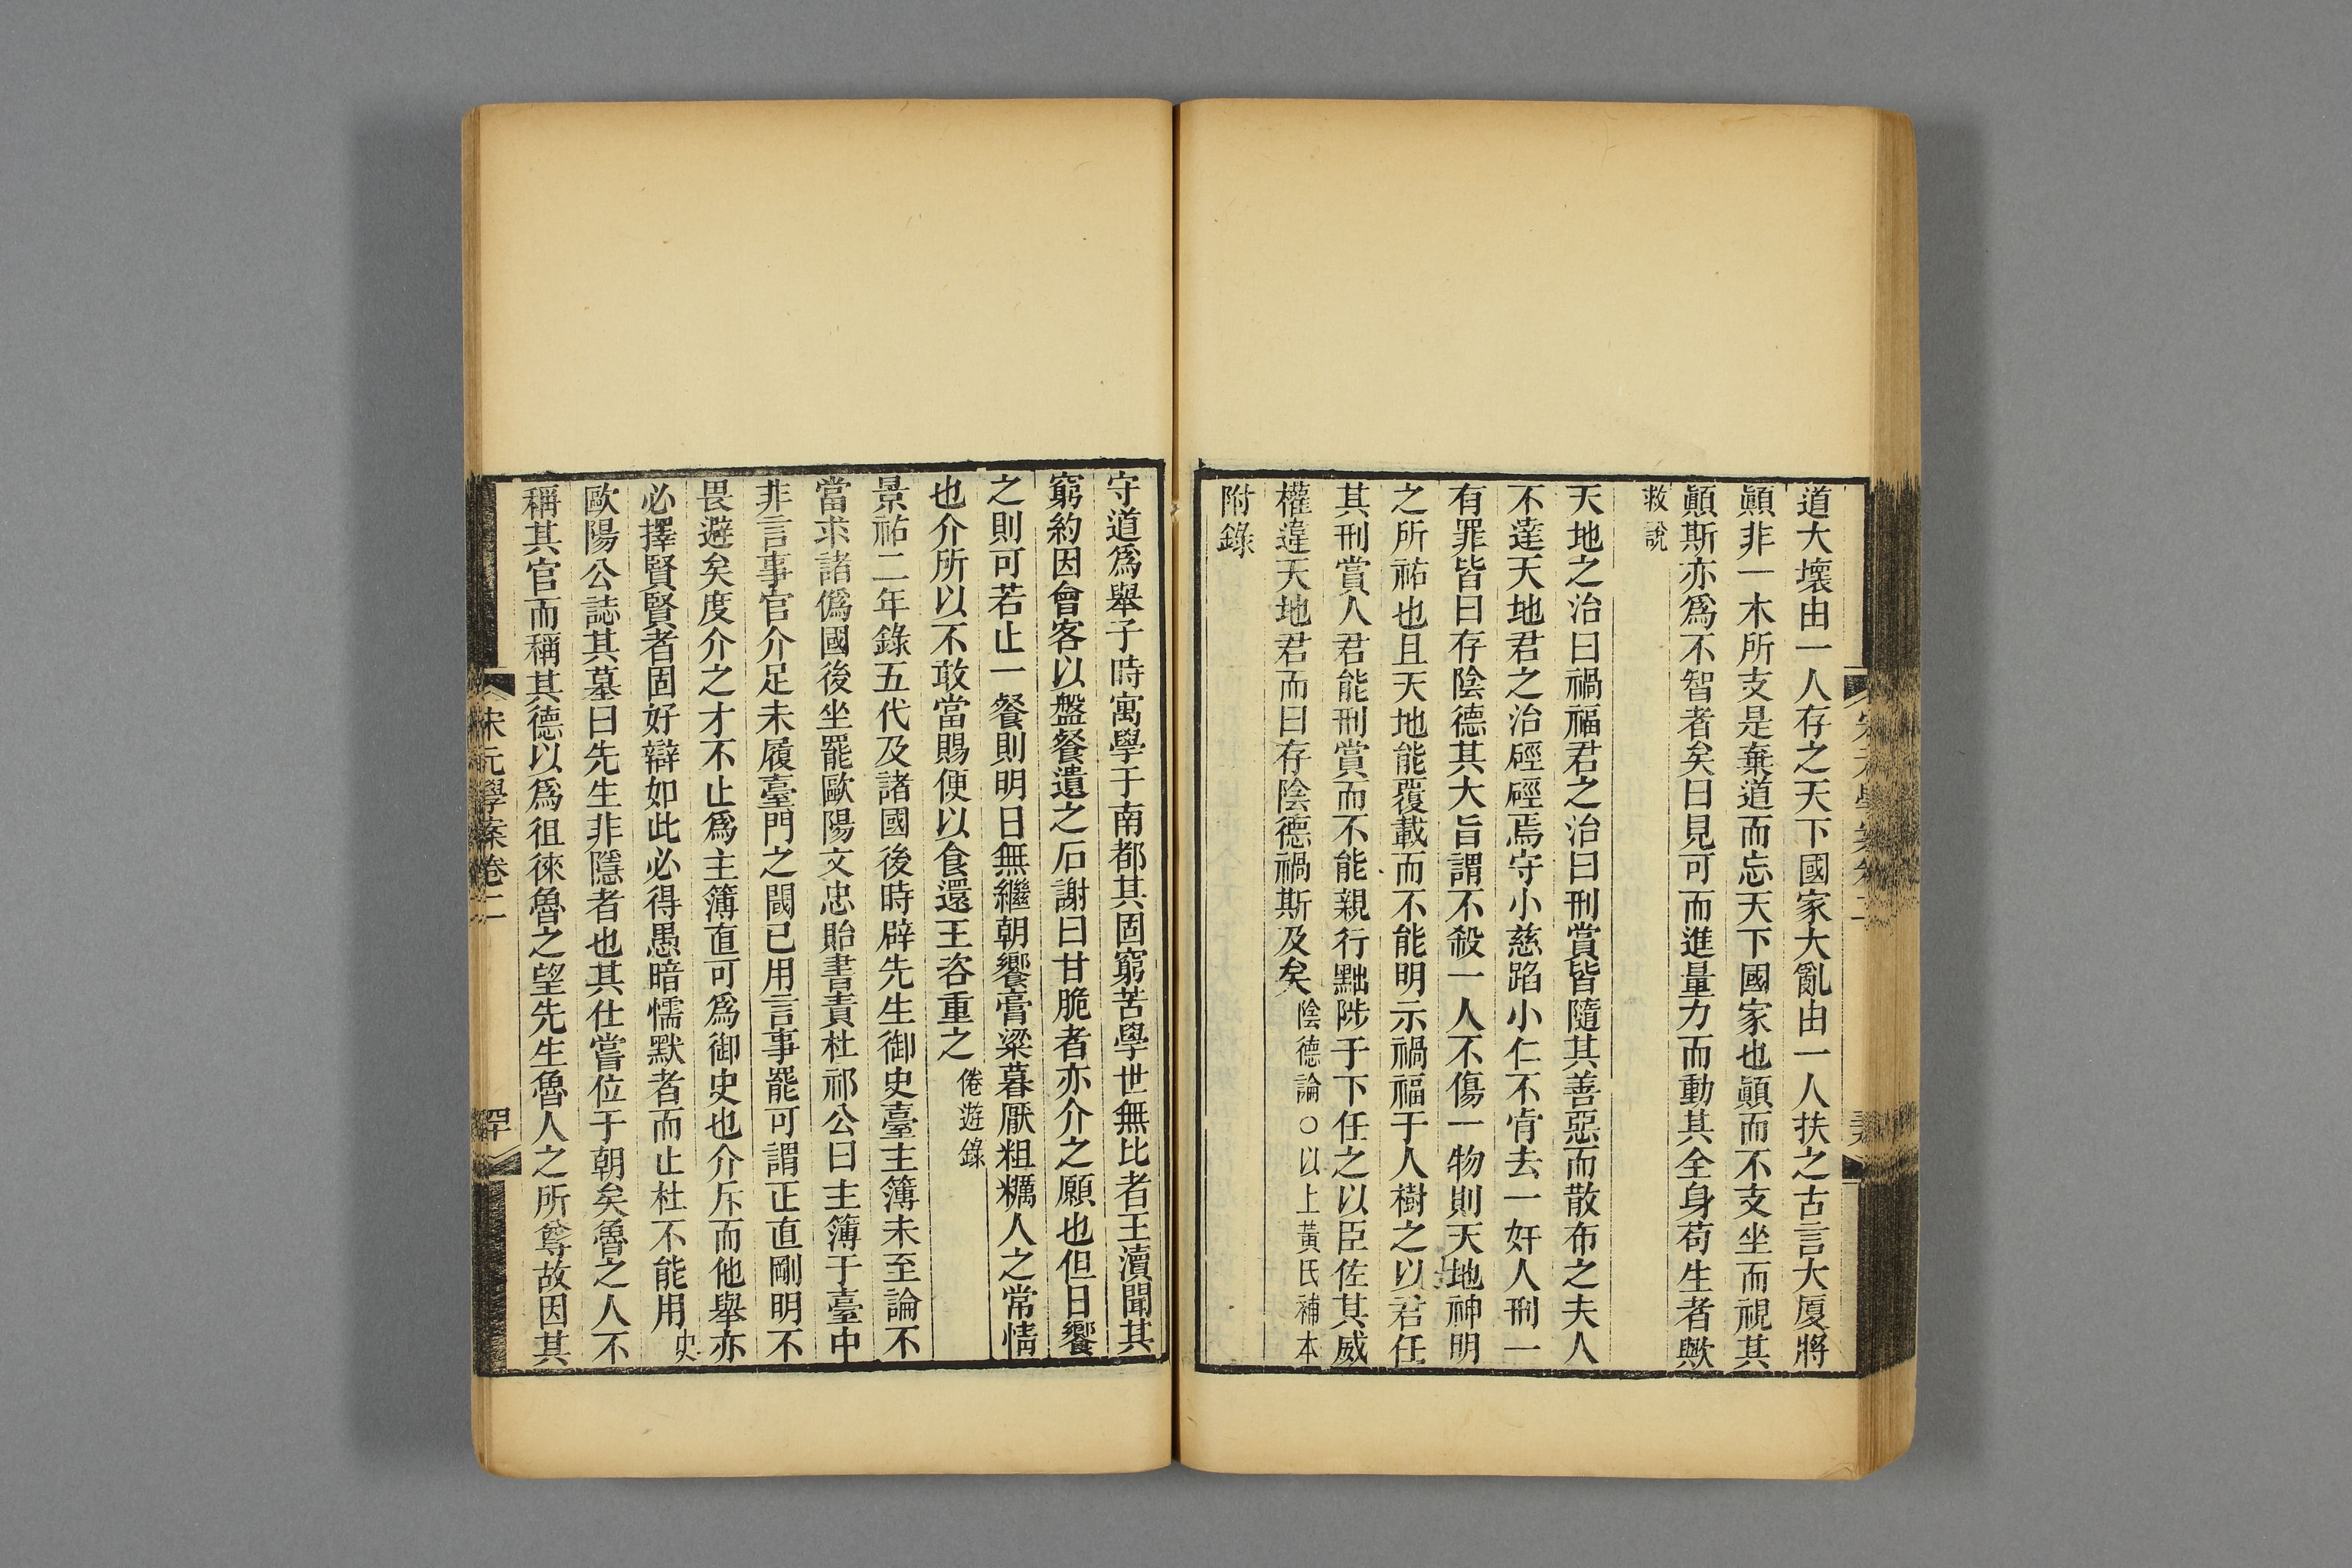 道大壞由一人存之天下國家大亂由一人扶之古言大厦將
顚非一木所支是棄道而忘天下國家也顚而不支坐而視其
顚斯亦爲不智者矣曰見可而進量力而動其全身苟生者歟
救說
天地之治曰禍福君之治曰刑賞皆隨其善惡而散布之夫人
不達天地君之治硜硜焉守小慈蹈小仁不肯去一奸人刑一
有罪皆曰存陰德其大旨謂不殺一人不傷一物則天地神明
之所祐也且天地能覆載而不能明示禍福于人樹之以君任
其刑賞人君能刑賞而不能親行黜陟于下任之以臣佐其威
權違天地君而曰存陰德禍斯及矣陰德論○以上黃氏補本
附錄
守道爲舉子時寓學于南都其固窮苦學世無比者王瀆聞其
窮約因會客以盤餐遺之石謝曰甘脆者亦介之願也但日饗
之則可若止一餐則明日無繼朝饗膏粱暮厭粗糲人之常情
也介所以不敢當賜便以食還王咨重之倦遊錄
景祐二年錄五代及諸國後時辟先生御史臺主簿未至論不
當求諸僞國後坐罷歐陽文忠貽書責杜祁公曰主簿于臺中
非言事官介足未履臺門之閾已用言事罷可謂正直剛明不
畏避矣度介之才不止爲主簿直可爲御史也介斥而他舉亦
必擇賢賢者固好辯如此必得愚暗懦默者而止杜不能用史
歐陽公誌其墓曰先生非隱者也其仕嘗位于朝矣魯之人不
稱其官而稱其德以爲徂徠魯之望先生魯人之所尊故因其
宋元學案卷二
四十